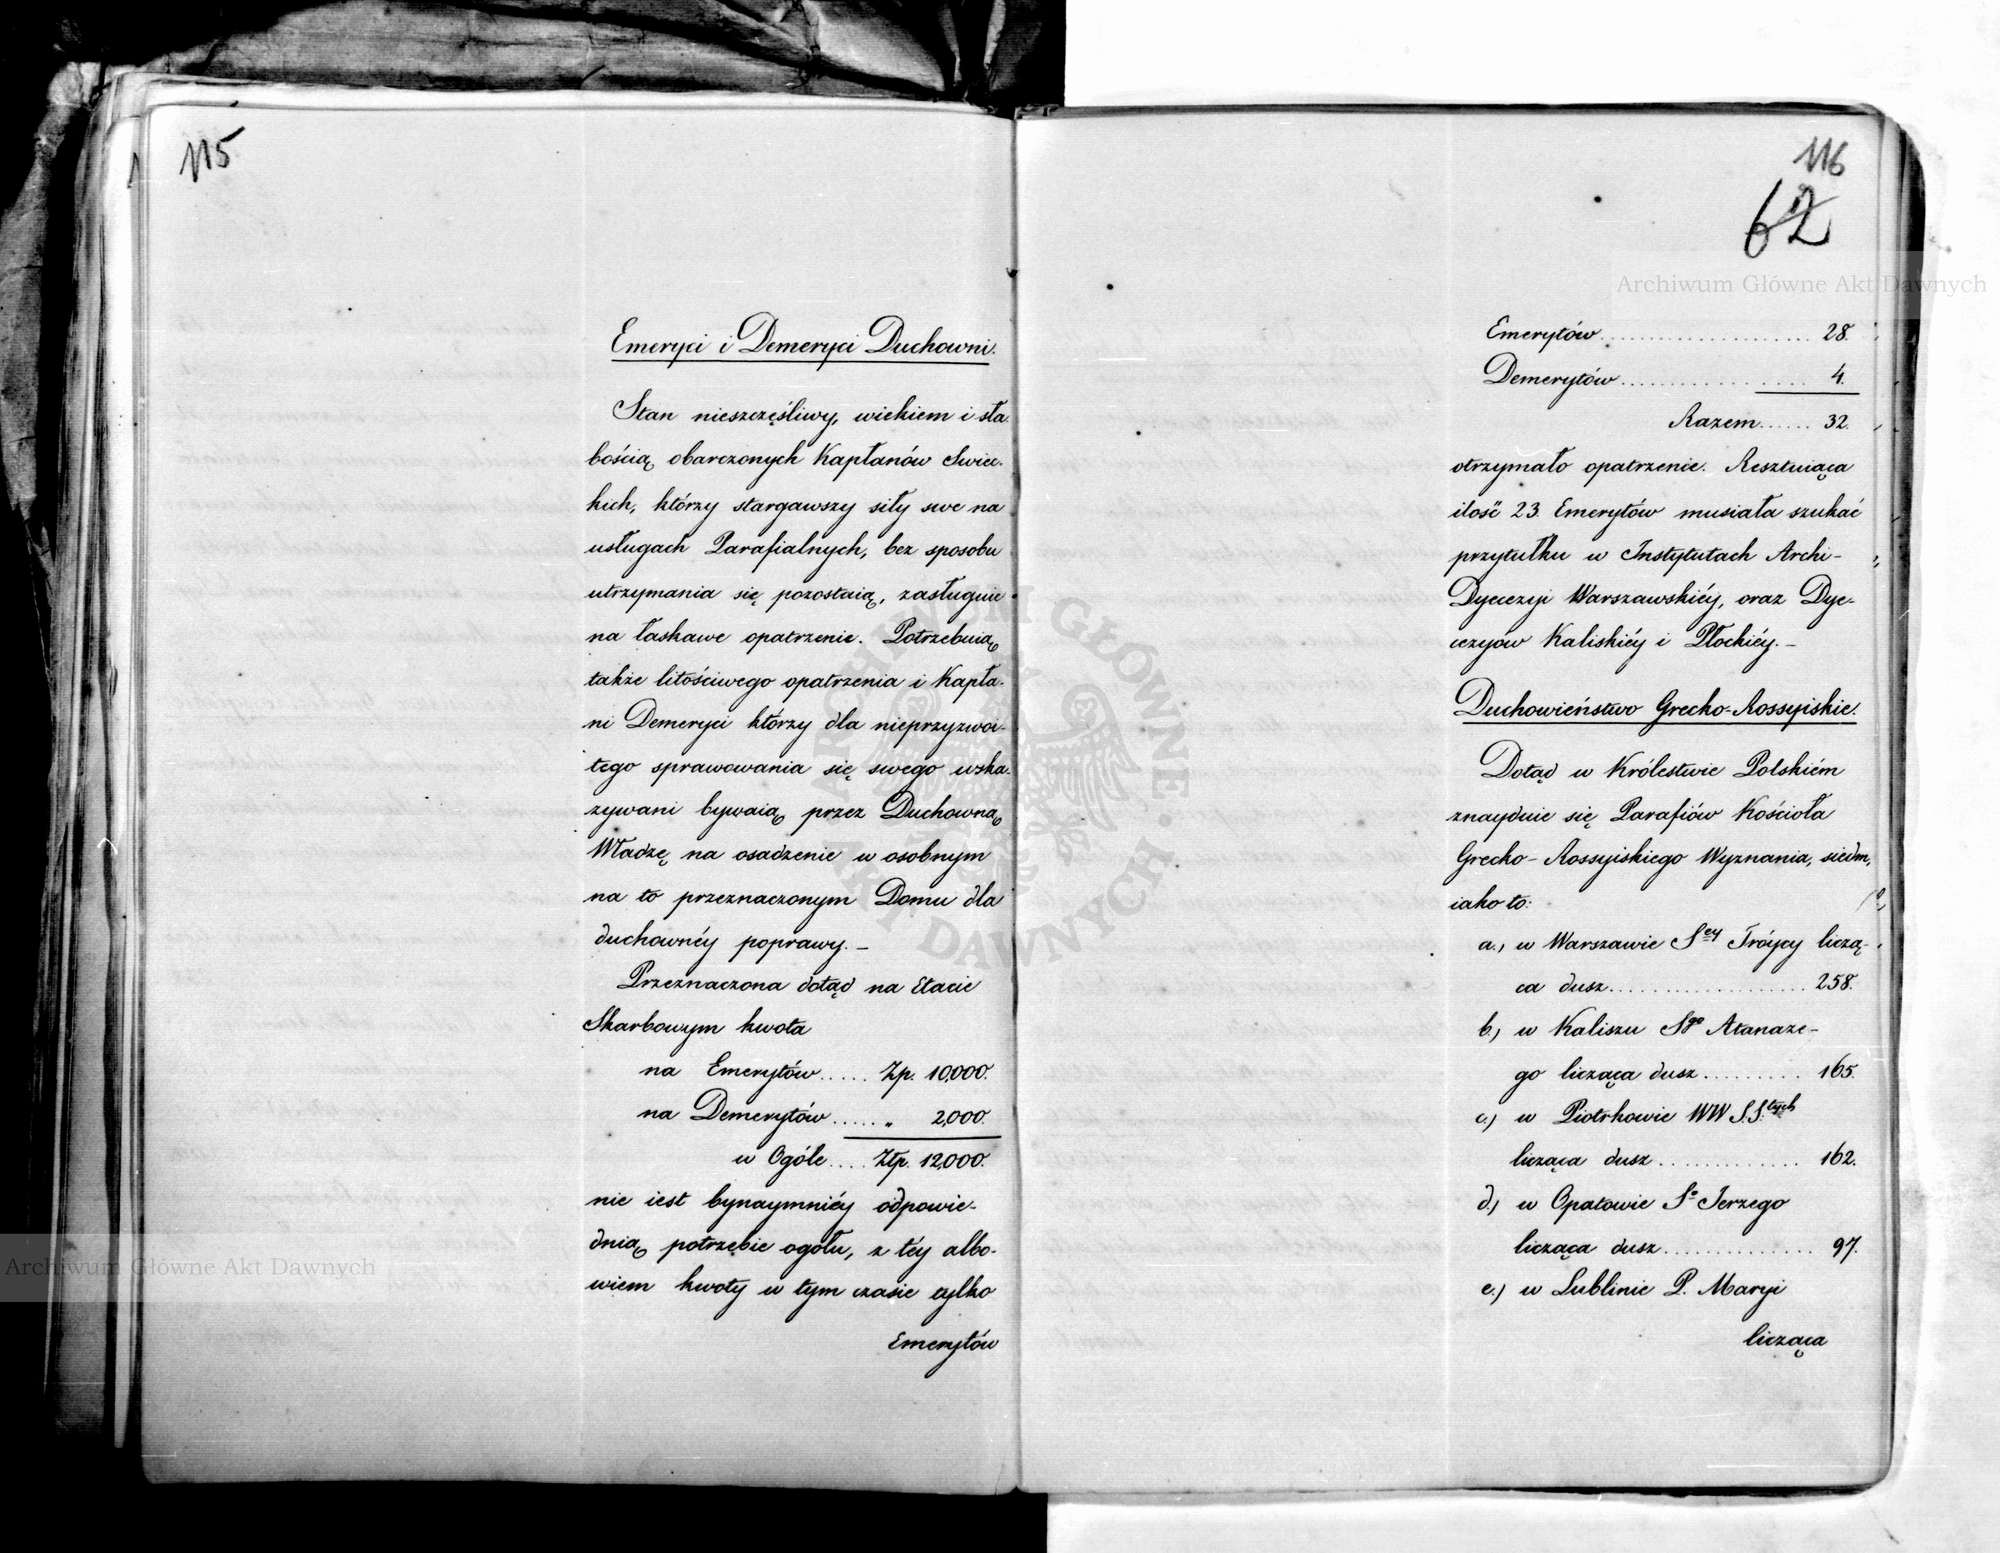 115
Emeryci i Demeryci Duchowni.
Stan nieszczęśliwy, wiekiem i sła-
bością obarczonych Kapłanów Swiec-
kich, którzy stargawszy siły swe na
usługach Parafialnych, bez sposobu
utrzymania się pozostaią, zasługuie
na łaskawe opatrzenie. Potrzebuią
także litościwego opatrzenia i Kapła-
ni Demeryci którzy dla nieprzyzwoi-
tego sprawowania się swego wska-
zywani bywaią przez Duchowną
Władzę na osadzenie w osobnym
na to przeznaczonym Domu dla
duchownéy poprawy. –
Przeznaczona dotąd na Etacie
Skarbowym kwota
na Emerytów..... Zp. 10,000.
na Demerytów..... „ 2,000.
w Ogóle.... Złp. 12,000.
nie iest bynaymniéy odpowie-
dnią potrzebie ogółu, z téy albo-
wiem kwoty w tym czasie tylko
Emerytów
116
62
Emerytów..................... 28.
Demerytów.................. 4.
Razem...... 32.
otrzymało opatrzenie. Resztuiąca
ilość 23. Emerytów musiała szukać
przytułku w Instytutach Archi-
Dyecezyi Warszawskiéy, oraz Dye-
cezyów Kaliskiéy i Płockiéy. –
Duchowieństwo Grecko-Rossyiskie.
Dotąd w Królestwie Polskiém
znayduie się Parafiów Kościoła
Grecko-Rossyiskiego Wyznania, siedm,
iako to:
a.) w Warszawie Sey Tróycy liczą-
ca dusz.................... 258.
b.) w Kaliszu Sgo Atanaze-
go licząca dusz.......... 165.
c.) w Piotrkowie WW S.S.tych
licząca dusz.............. 162.
d.) w Opatowie So Jerzego
licząca dusz............... 97.
e.) w Lublinie P. Maryi
licząca
Archiwum Główne Akt Dawnych
Archiwum Główne Akt Dawnych
ARCHIWUM GŁÓWNE AKT DAWNYCH